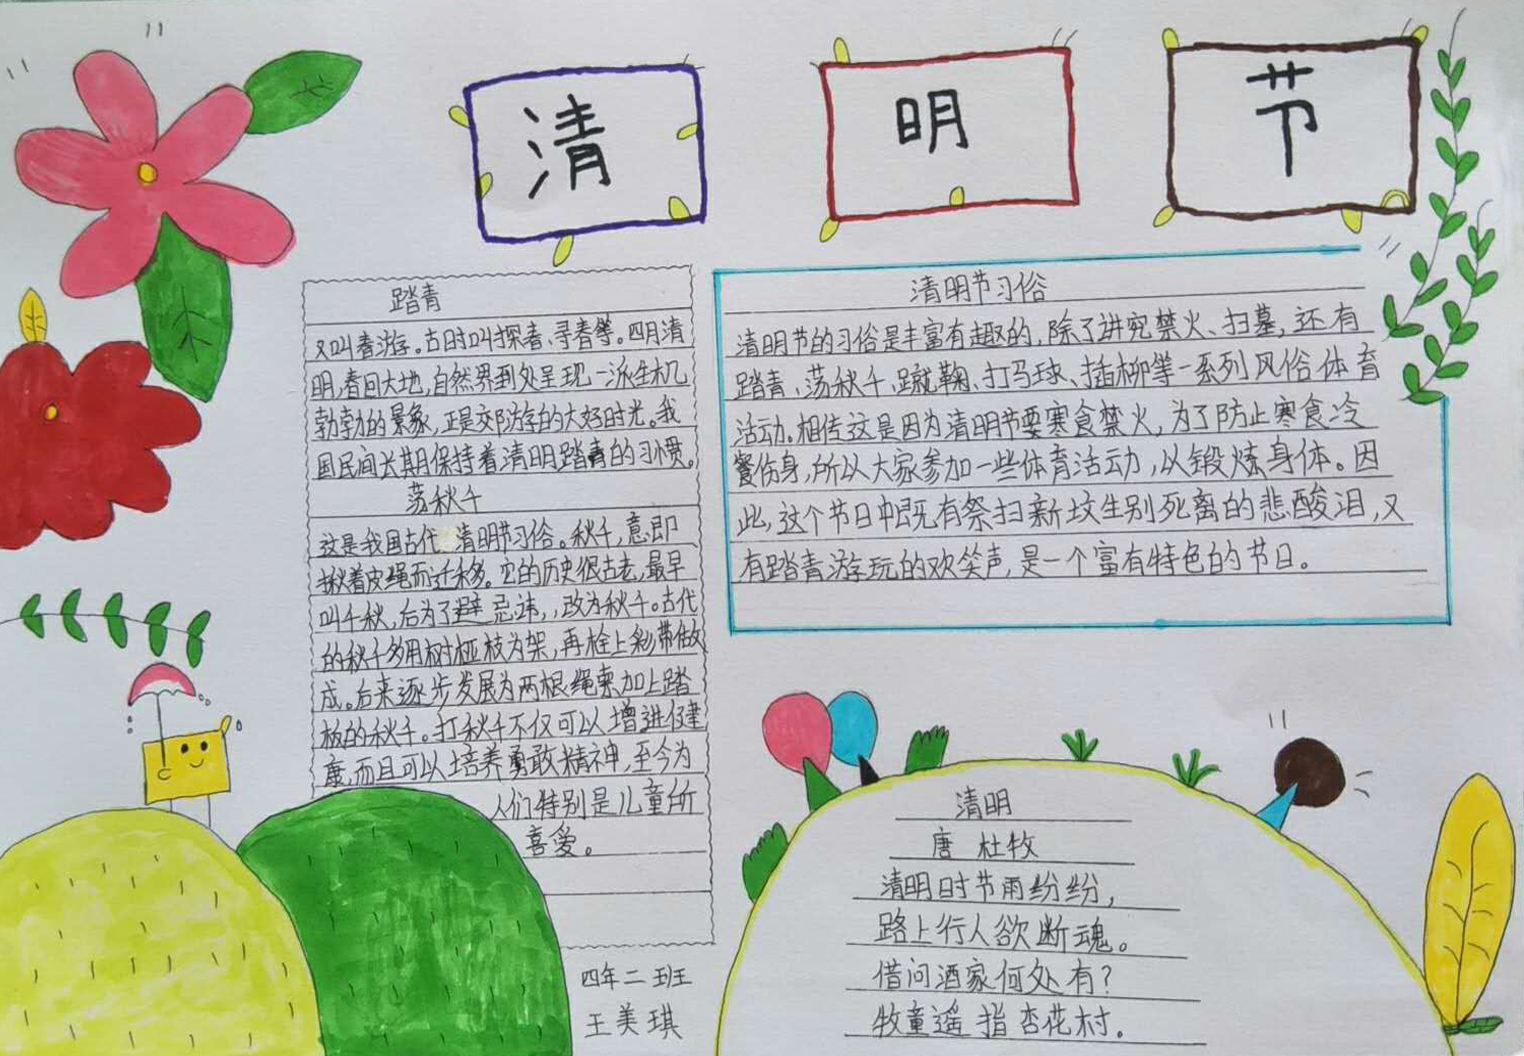 清 明 节
踏青
又叫春游。古时叫探春、寻春等。四月清
明,春回大地,自然界到处呈现一派生机
勃勃的景象,正是郊游的大好时光。我
国民间长期保持着清明踏青的习惯。
荡秋千
这是我国古代清明节习俗。秋千,意即
揪着皮绳而迁移。它的历史很古老,最早
叫千秋,后为了避忌讳,改为秋千。古代
的秋千多用树桠枝为架,再栓上彩带做
成。后来逐步发展为两根绳索加上踏
板的秋千。打秋千不仅可以增进健
康,而且可以培养勇敢精神,至今为
人们特别是儿童所
喜爱。
清明节习俗
清明节的习俗是丰富有趣的,除了讲究禁火、扫墓,还有
踏青、荡秋千、蹴鞠、打马球、插柳等一系列风俗体育
活动。相传这是因为清明节要寒食禁火,为了防止寒食冷
餐伤身,所以大家参加一些体育活动,以锻炼身体。因
此,这个节日中既有祭扫新坟生别死离的悲酸泪,又
有踏青游玩的欢笑声,是一个富有特色的节日。
清明
唐 杜牧
清明时节雨纷纷,
路上行人欲断魂。
借问酒家何处有?
牧童遥指杏花村。
四年二班
王美琪